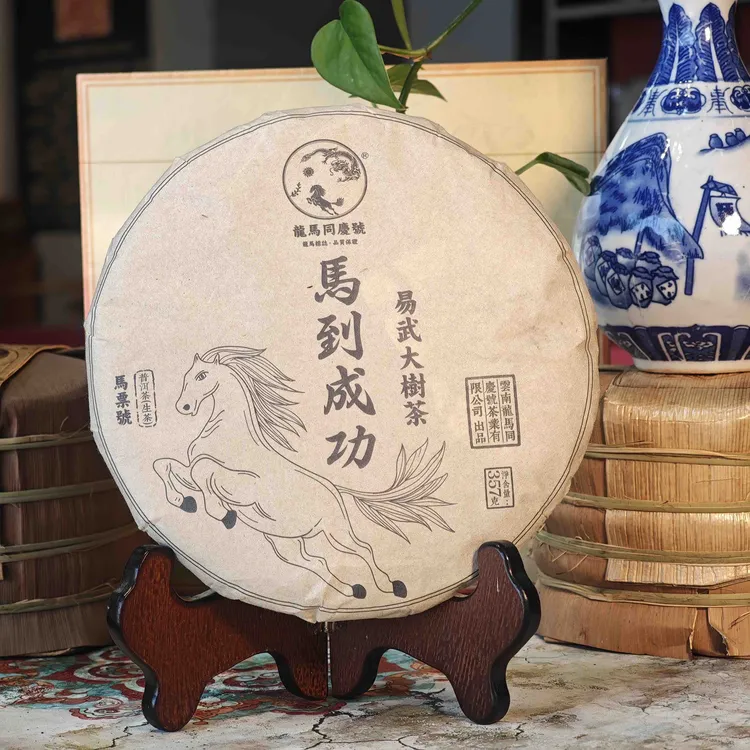 ®
龍馬同慶號
龍馬標誌·品質保證
馬到成功
易武大樹茶
普洱茶(生茶)
馬票號
雲南龍馬同
慶號茶業有
限公司 出品
淨含量:
357克